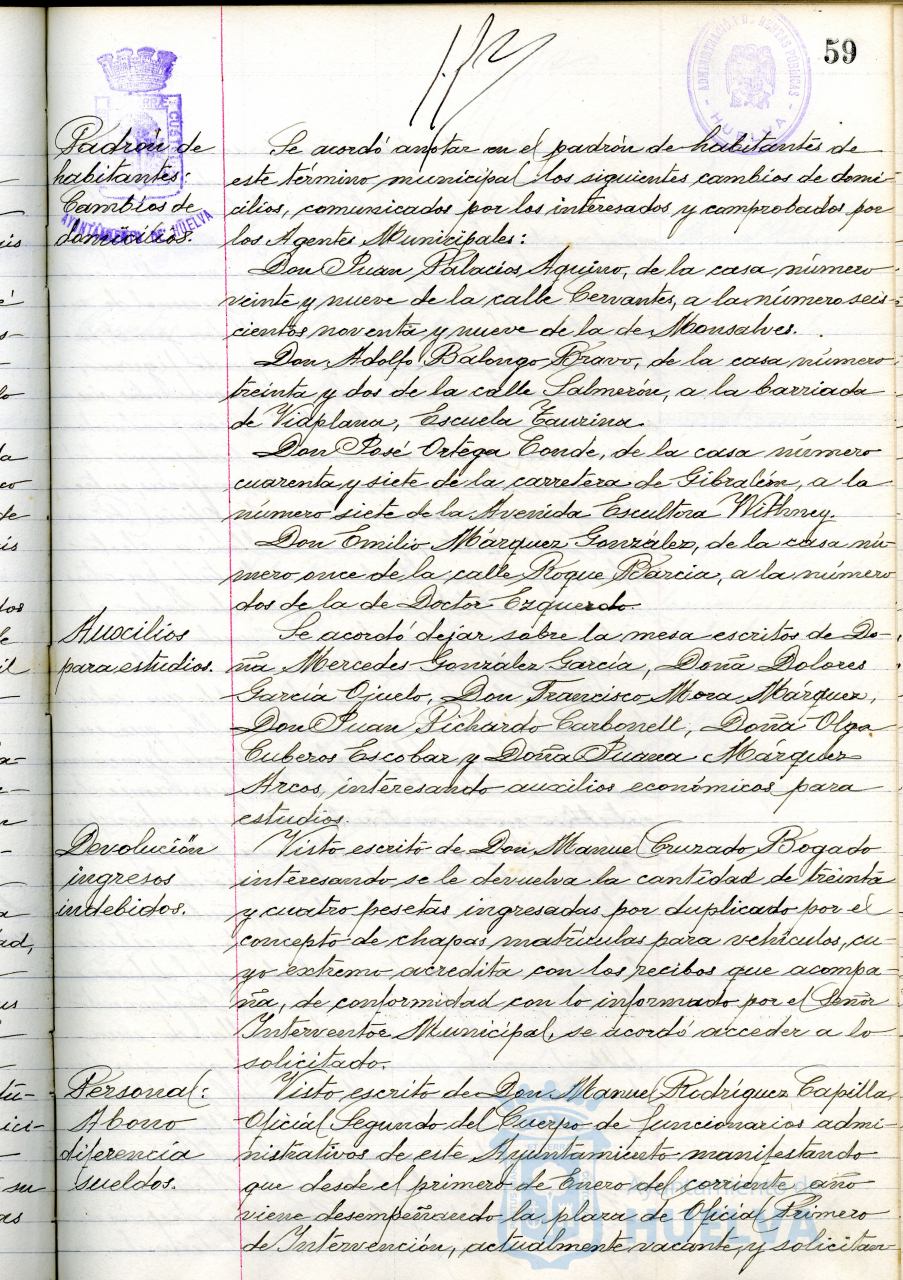 59
ADMINISTRACIÓN DE RENTAS PÚBLICAS
HUELVA
AYUNTAMIENTO DE HUELVA
Padrón de
habitantes:
Cambios de
domicilios.
Se acordó anotar en el padrón de habitantes de
este término municipal los siguientes cambios de domi-
cilios, comunicados por los interesados y comprobados por
los Agentes Municipales:
Don Juan Palacios Aquino, de la casa número
veinte y nueve de la calle Cervantes, a la número seis-
cientos noventa y nueve de la de Monsalves.
Don Adolfo Balongo Bravo, de la casa número
treinta y dos de la calle Salmerón, a la barriada
de Viaplana, Escuela Taurina.
Don José Ortega Conde, de la casa número
cuarenta y siete de la carretera de Gibraleón, a la
número siete de la Avenida Escultora Withney.
Don Emilio Márquez González, de la casa nú-
mero once de la calle Roque Barcia, a la número
dos de la de Doctor Ezquerdo.
Auxilios
para estudios.
Se acordó dejar sobre la mesa escritos de Do-
ña Mercedes González García, Doña Dolores
García Ojuelo, Don Francisco Mora Márquez,
Don Juan Pichardo Carbonell, Doña Olga
Cuberos Escobar y Doña Juana Márquez
Arcos, interesando auxilios económicos para
estudios.
Devolución
ingresos
indebidos.
Visto escrito de Don Manuel Cruzado Bogado
interesando se le devuelva la cantidad de treinta
y cuatro pesetas ingresadas por duplicado por el
concepto de chapas matrículas para vehículos, cu-
yo extremo acredita con los recibos que acompa-
ña, de conformidad con lo informado por el Señor
Interventor Municipal, se acordó acceder a lo
solicitado.
Personal:
Abono
diferencia
sueldos.
Visto escrito de Don Manuel Rodríguez Capilla,
Oficial Segundo del Cuerpo de funcionarios admi-
nistrativos de este Ayuntamiento manifestando
que desde el primero de Enero del corriente año
viene desempeñando la plaza de Oficial Primero
de Intervención, actualmente vacante, y solicitan-
Ayuntamiento de
HUELVA